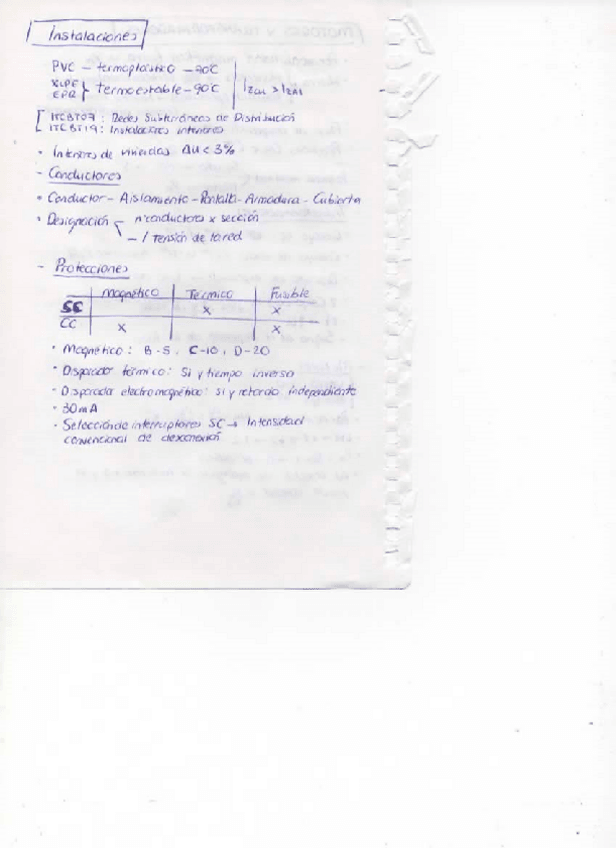 Instalaciones
PVC - termoplástico - 70ºC
XLPE
EPR } termoestable - 90ºC | IZCu > IZAl
ITCBT07: Redes Subterráneas de Distribución
ITCBT19: Instalaciones interiores
• Interiores de viviendas ΔU < 3%
- Conductores
• Conductor - Aislamiento - Pantalla - Armadura - Cubierta
• Designación - nºconductores x sección
- / Tensión de la red
- Protecciones
Magnético Térmico Fusible
SC x x
CC x x
• Magnético: B-5, C-10, D-20
• Disparador térmico: Si y tiempo inversa
• Disparador electromagnético: si y retardo independiente
• 30mA
• Selección de interruptores SC → Intensidad
convencional de desconexión